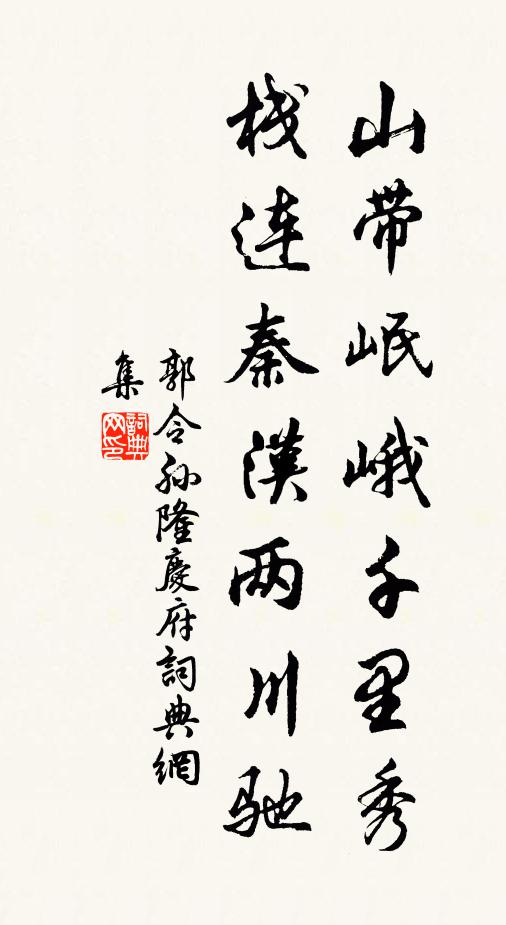 山带岷峨千里秀
栈连秦漢两川驰
郭令孙隆慶府詞典網
集
詞典网印